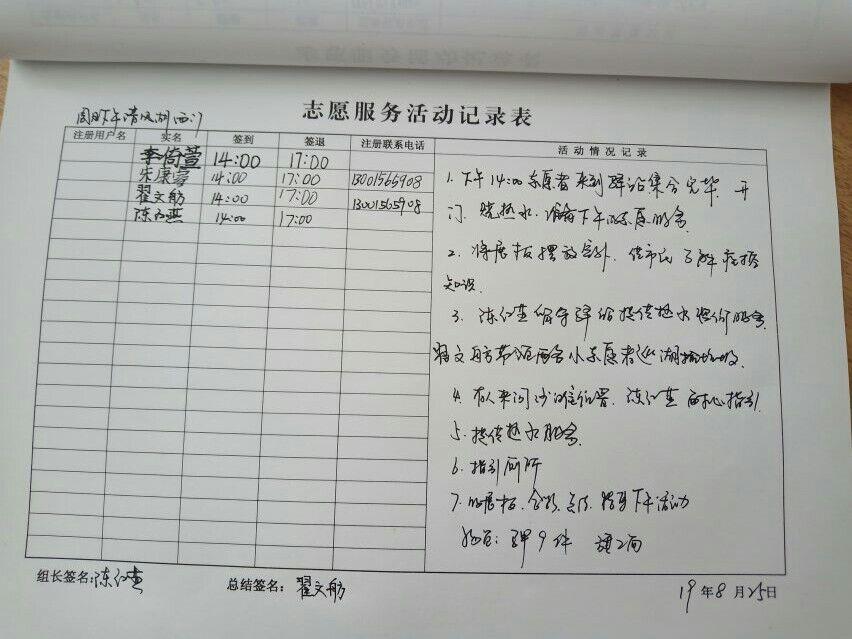 志愿服务活动记录表
周日下午清风湖西门
注册用户名 实名 签到 签退 注册联系电话 活动情况记录
李倚萱 14:00 17:00
14:00 17:00 13001565908
翟文舫 14:00 17:00 13001565908
陈红燕 14:00 17:00
1. 下午14:00志愿者来到驿站集合完毕. 开
门. 烧热水. 准备下午的志愿服务.
2. 将展板摆放室外. 供市民了解
知识.
3. 陈红燕留守驿站提供热水 服务.
翟文舫带领两名小志愿者巡湖捡垃圾.
4. 有人来问 位置. 陈红燕耐心指引.
5. 提供热水服务.
6. 指引厕所
7. 收展板. 合影. 结束下午活动
物品: 9件 旗2面
组长签名: 陈红燕 总结签名: 翟文舫 19年8月25日